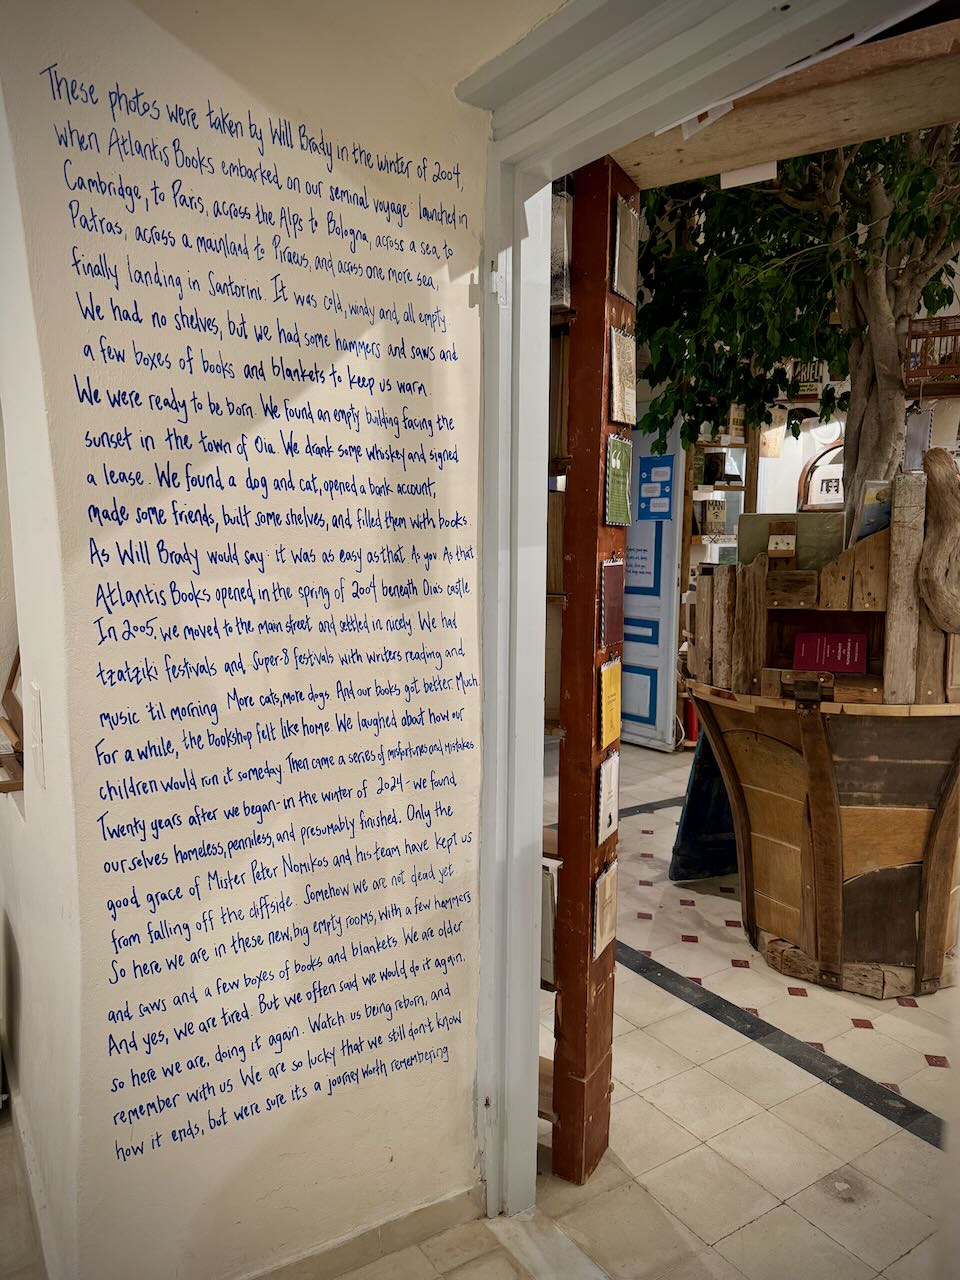 These photos were taken by Will Brady in the winter of 2004,
when Atlantis Books embarked on our seminal voyage: launched in
Cambridge, to Paris, across the Alps to Bologna, across a sea, to
Patras, across a mainland to Piraeus, and across one more sea,
finally landing in Santorini. It was cold, windy and all empty.
We had no shelves, but we had some hammers and saws and
a few boxes of books and blankets to keep us warm.
We were ready to be born. We found an empty building facing the
sunset in the town of Oia. We drank some whiskey and signed
a lease. We found a dog and cat, opened a bank account,
made some friends, built some shelves, and filled them with books.
As Will Brady would say: it was as easy as that. As you. As that
Atlantis Books opened in the spring of 2004 beneath Oia's castle
In 2005, we moved to the main street and settled in nicely. We had
tzatziki festivals and Super-8 festivals with writers reading and
music 'til morning. More cats, more dogs. And our books got better. Much.
For a while, the bookshop felt like home. We laughed about how our
children would run it someday. Then came a series of misfortunes and mistakes
Twenty years after we began - in the winter of 2024 - we found
ourselves homeless, penniless, and presumably finished. Only the
good grace of Mister Peter Nomikos and his team have kept us
from falling off the cliffside. Somehow we are not dead yet
So here we are in these new, big empty rooms, with a few hammers
and saws and a few boxes of books and blankets. We are older
And yes, we are tired. But we often said we would do it again.
so here we are, doing it again. Watch us being reborn, and
remember with us. We are so lucky that we still don't know
how it ends, but we're sure it's a journey worth remembering
MANI